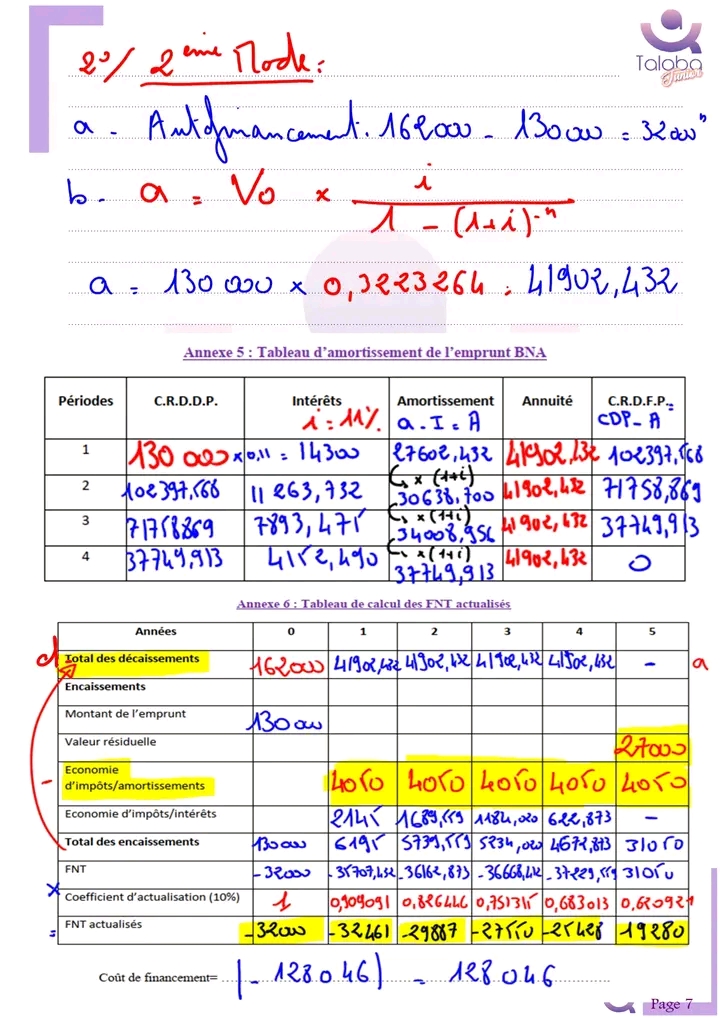 Taloba
Junior
2°/ 2ème Mode :
a - Autofinancement. 162000 - 130000 = 32000
b - a = Vo × i / 1 - (1+i)-n
a = 130 000 × 0,3223264 = 41902,432
Annexe 5 : Tableau d'amortissement de l'emprunt BNA
Périodes C.R.D.D.P. Intérêts Amortissement Annuité C.R.D.F.P.
i = 11% a - I = A CDP - A =
1 130 000 × 0,11 = 14300 27602,432 41902,432 102397,568
× (1+i)
2 102397,568 11 263,732 30638,700 41902,432 71758,869
× (1+i)
3 71758,869 7893,475 34008,956 41902,432 37749,913
× (1+i)
4 37749,913 4152,490 37749,913 41902,432 0
Annexe 6 : Tableau de calcul des FNT actualisés
Années 0 1 2 3 4 5
d Total des décaissements 162000 41902,432 41902,432 41902,432 41902,432 - a
Encaissements
Montant de l'emprunt 130000
Valeur résiduelle 27000
- Economie d'impôts/amortissements 4050 4050 4050 4050 4050
Economie d'impôts/intérêts 2145 1689,559 1184,020 622,873 -
Total des encaissements 130000 6195 5739,559 5234,020 4672,873 31050
FNT -32000 -35707,432 -36162,873 -36668,412 -37229,559 31050
× Coefficient d'actualisation (10%) 1 0,909091 0,826446 0,751315 0,683013 0,620921
= FNT actualisés -32000 -32461 -29887 -27550 -25428 19280
Coût de financement= |-128046| = 128046
Page 7